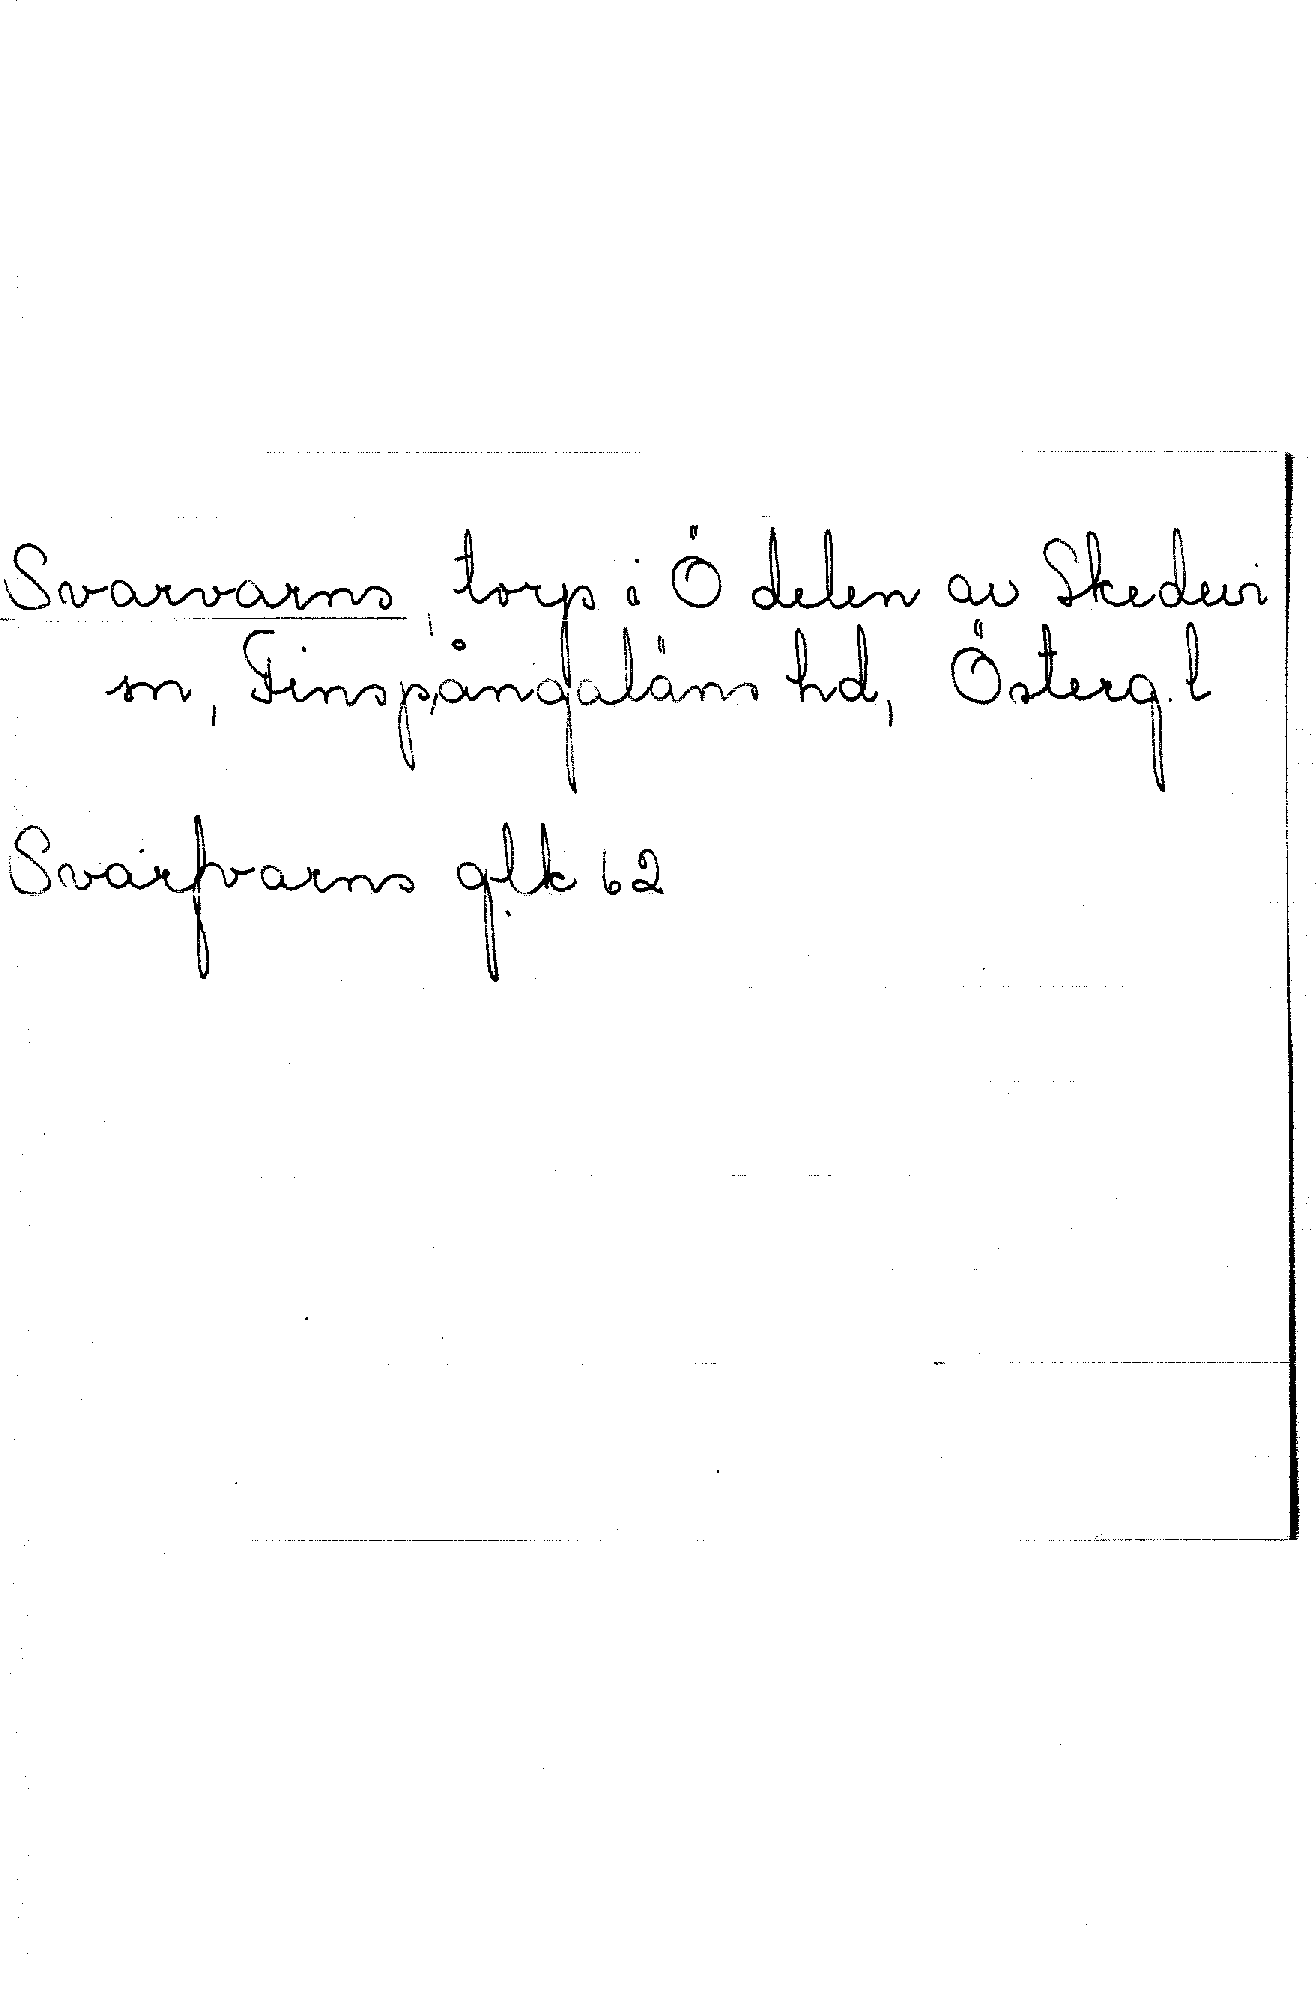 Svarvarns, torp i Ö delen av Skedevi
sn, Finspångaläns hd, Österg. l
Svarfvarns g.l.k 62